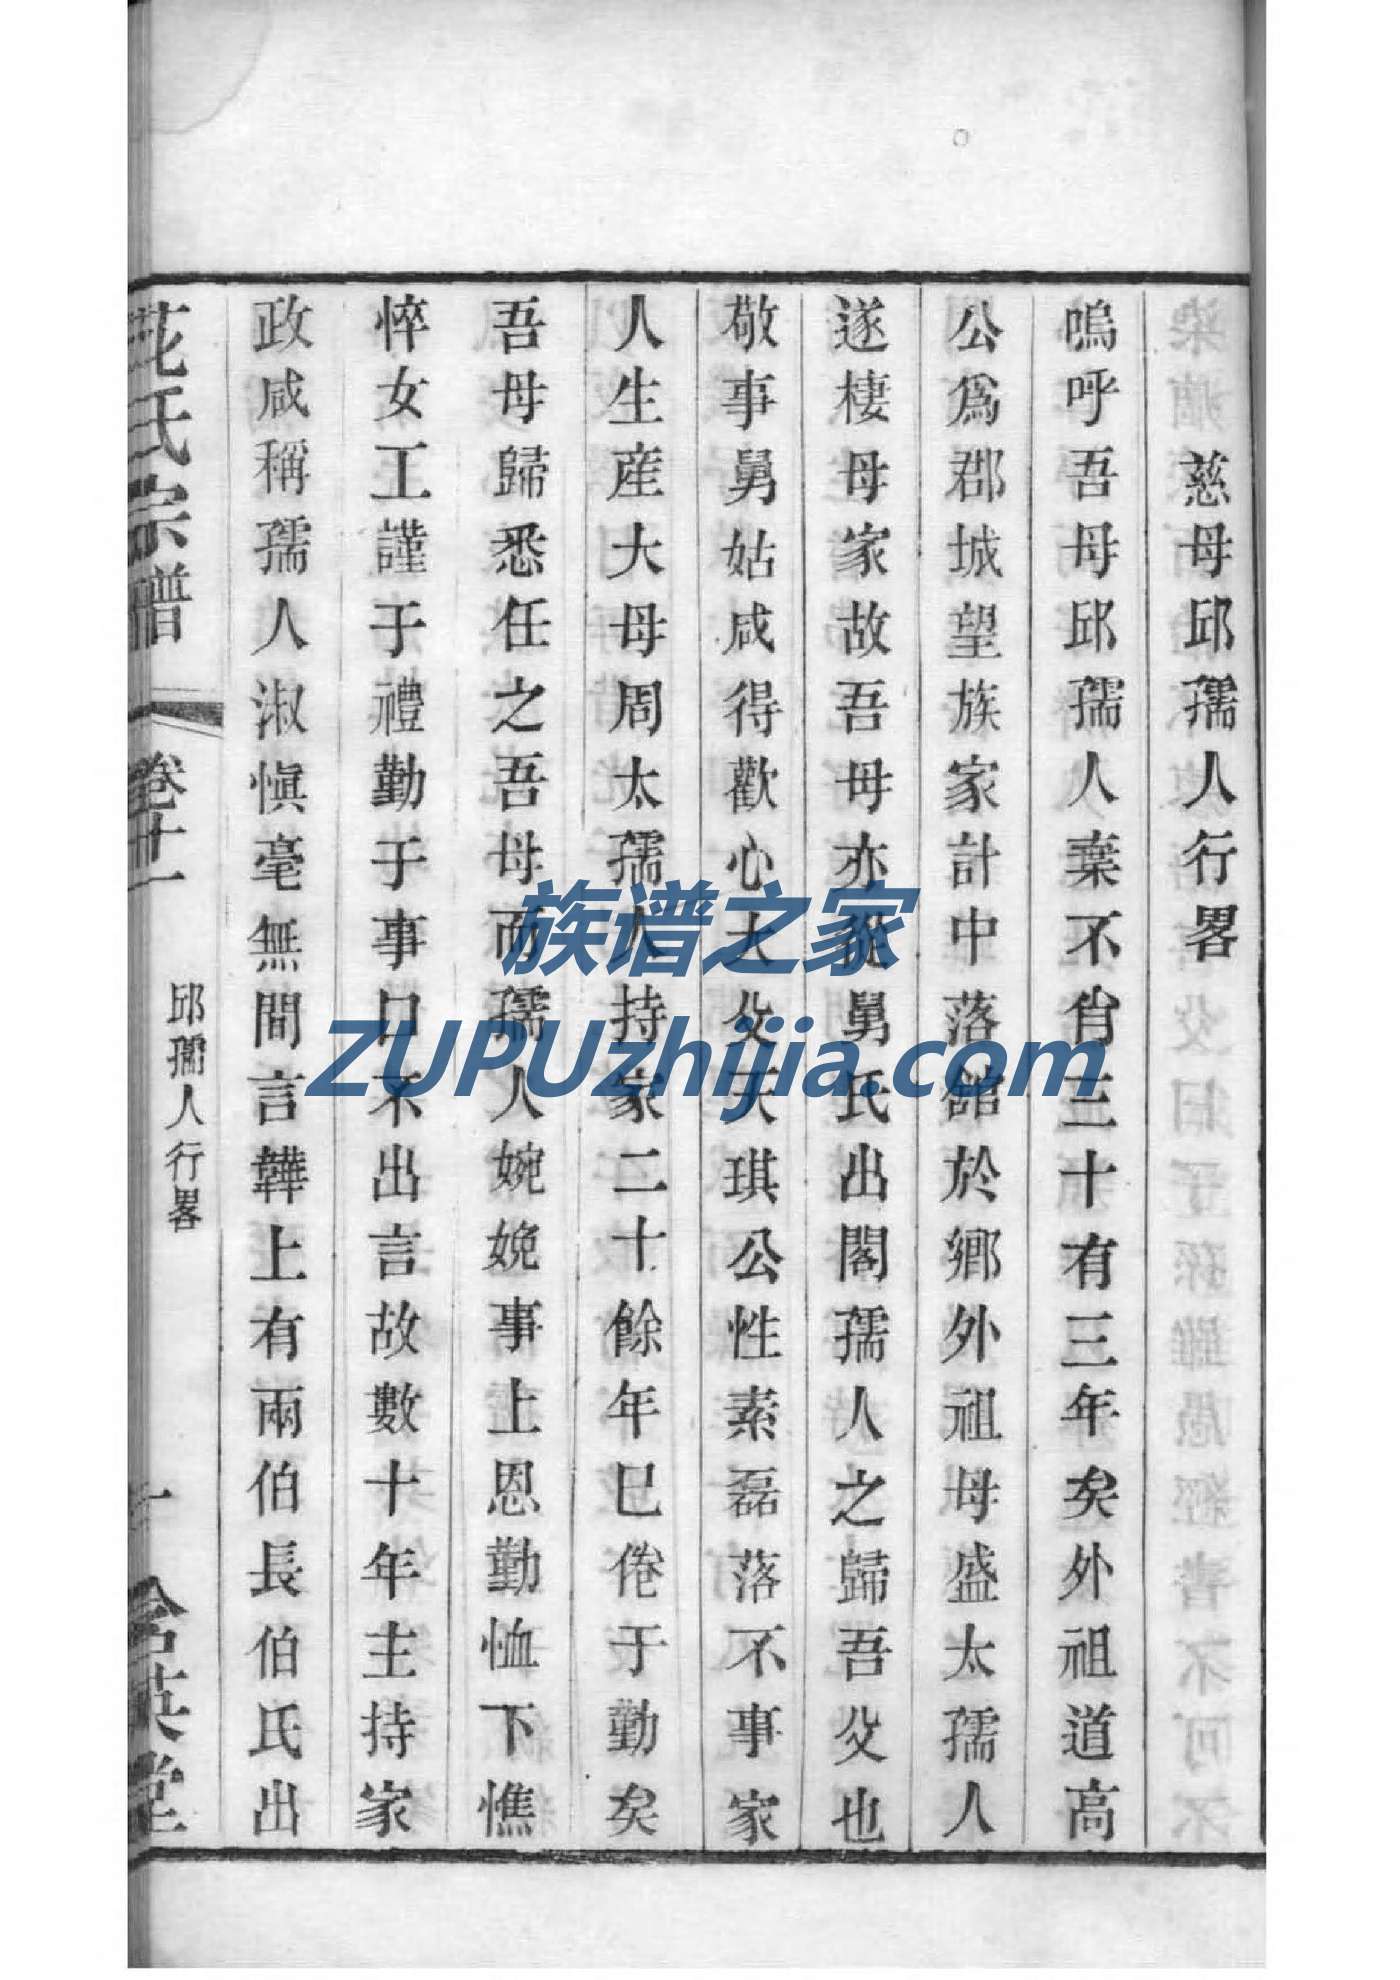 慈母邱孺人行畧
嗚呼吾母邱孺人棄不肖三十有三年矣外祖道高
公爲郡城望族家計中落館於鄉外祖母盛太孺人
遂棲母家故吾母亦從舅氏出閣孺人之歸吾父也
敬事舅姑咸得歡心大父天琪公性素磊落不事家
人生産大母周太孺人持家二十餘年已倦于勤矣
吾母歸悉任之吾母而孺人婉娩事上恩勤恤下憔
悴女工謹于禮勤于事口不出言故數十年主持家
政咸稱孺人淑愼毫無間言韡上有兩伯長伯氏出
花氏宗譜
卷十一
邱孺人行畧
一
含英堂
族谱之家
ZUPUzhijia.com